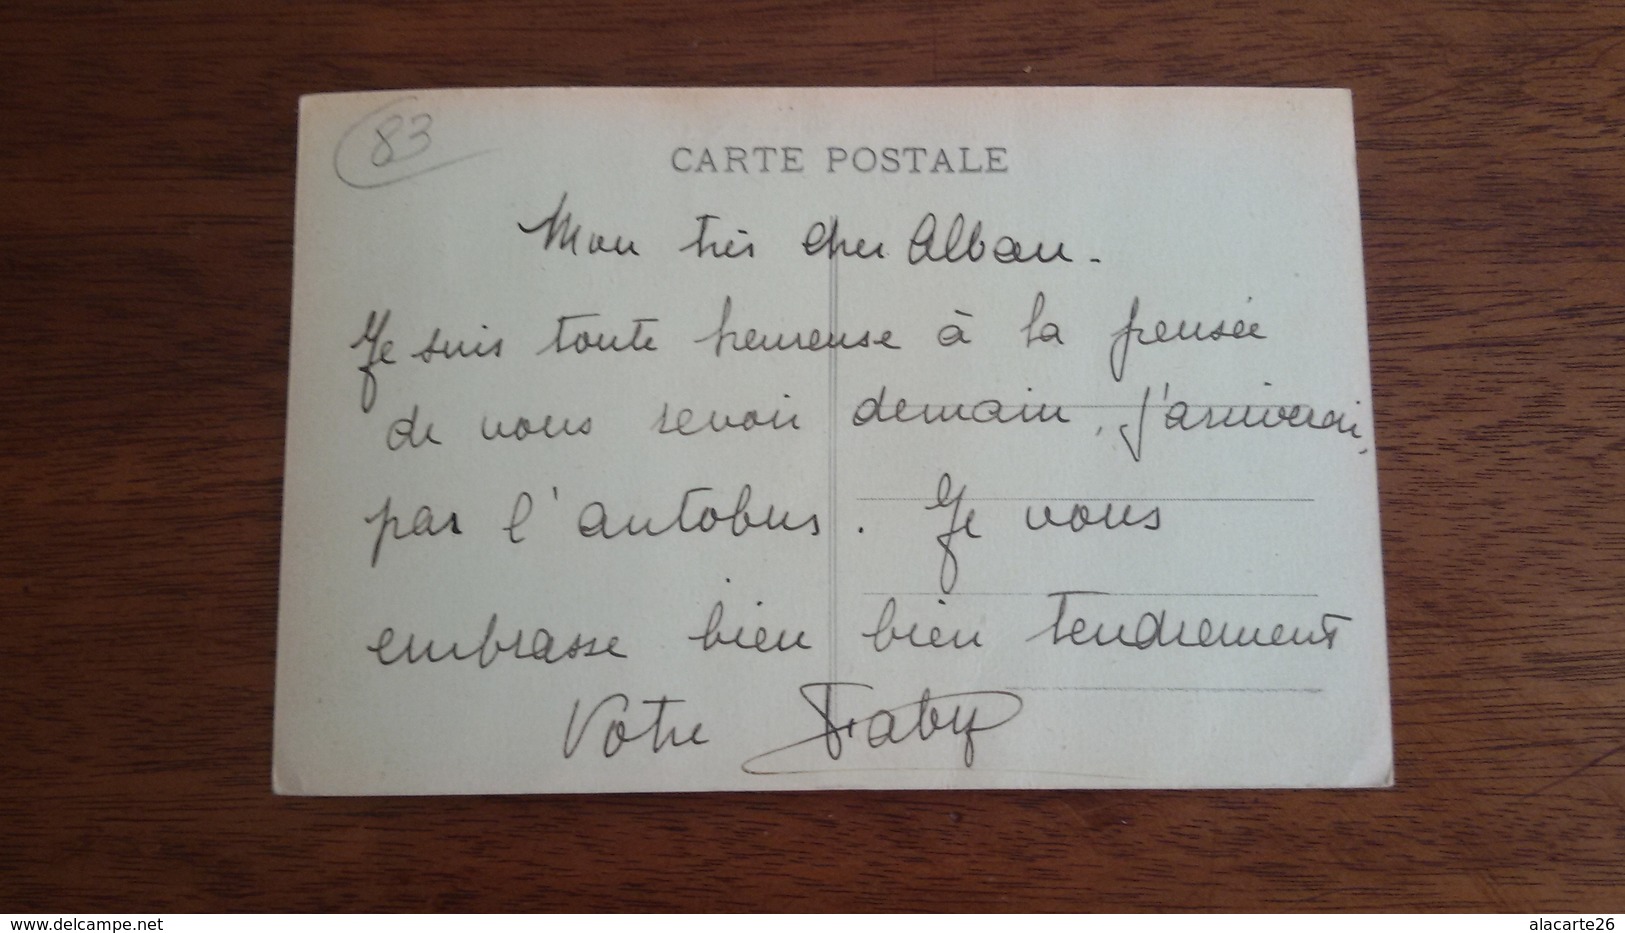 83
CARTE POSTALE
Mon très cher Alban.
Je suis toute heureuse à la pensée
de vous revoir demain, j'arriverai
par l'autobus. Je vous
embrasse bien bien tendrement
Votre
delcampe.net
alacarte26